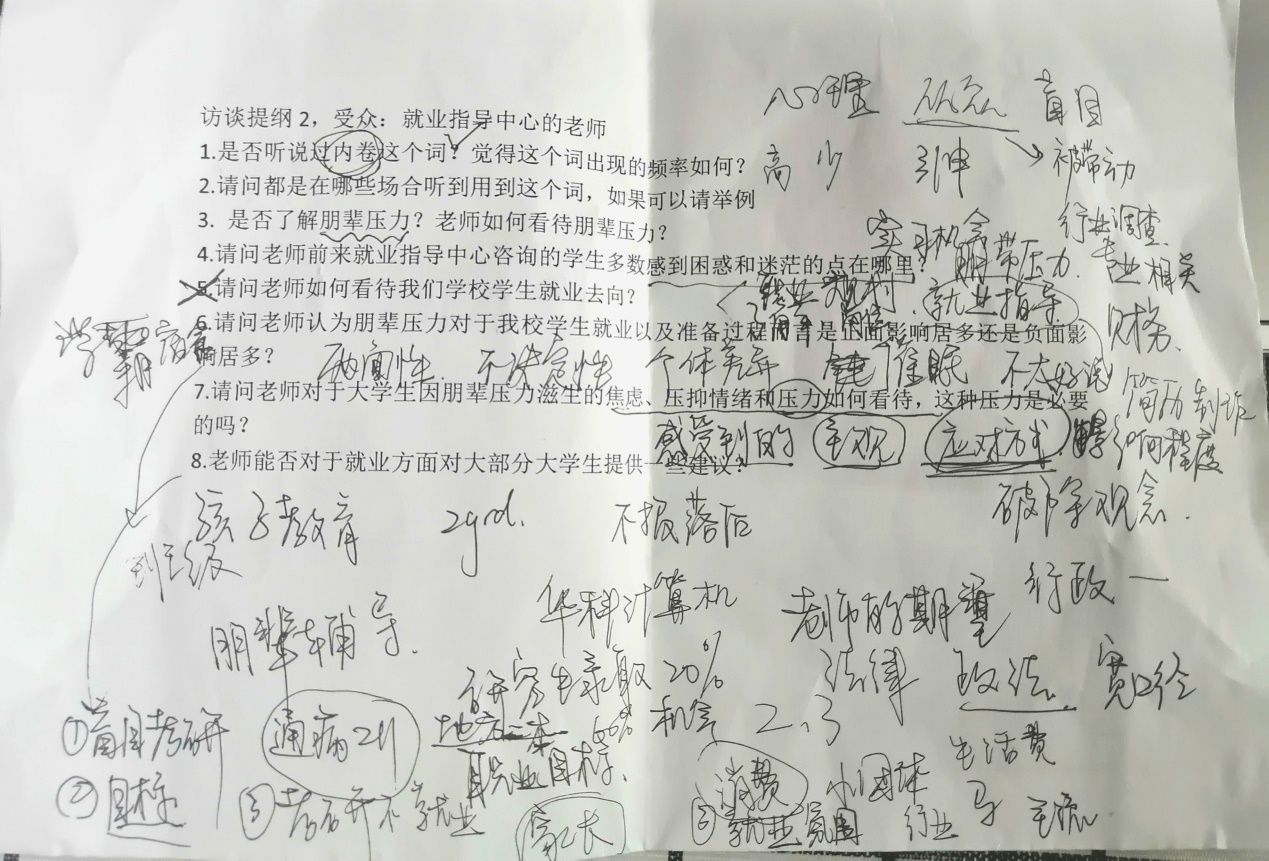 心理 盲目
访谈提纲2，受众：就业指导中心的老师
1.是否听说过内卷这个词？觉得这个词出现的频率如何？ 高 少 引申 被带动
2.请问都是在哪些场合听到用到这个词，如果可以请举例
行业调查
3. 是否了解朋辈压力？老师如何看待朋辈压力？
4.请问老师前来就业指导中心咨询的学生多数感到困惑和迷茫的点在哪里？ 压力 专业相关
5.请问老师如何看待我们学校学生就业去向？ 就业指导
财务
6.请问老师认为朋辈压力对于我校学生就业以及准备过程而言是正面影响居多还是负面影
响居多？ 两面性 个体差异 催眠 不大好说
简历制作
7.请问老师对于大学生因朋辈压力滋生的焦虑、压抑情绪和压力如何看待，这种压力是必要
的吗？ 感受到的 主观 应对方式 何程度
8.老师能否对于就业方面对大部分大学生提供一些建议？
孩子教育 不报落后 破除观念.
到班级
华科计算机 老师的期望 行政一
朋辈辅导.
研究生录取20% 法律 政法 宽口径
①盲目考研 通病 地方一本 60% 机会 2、3
职业目标. 生活费
②目标 ③考研不就业 消费 小团体
家长 ③就业氛围 行业 主流